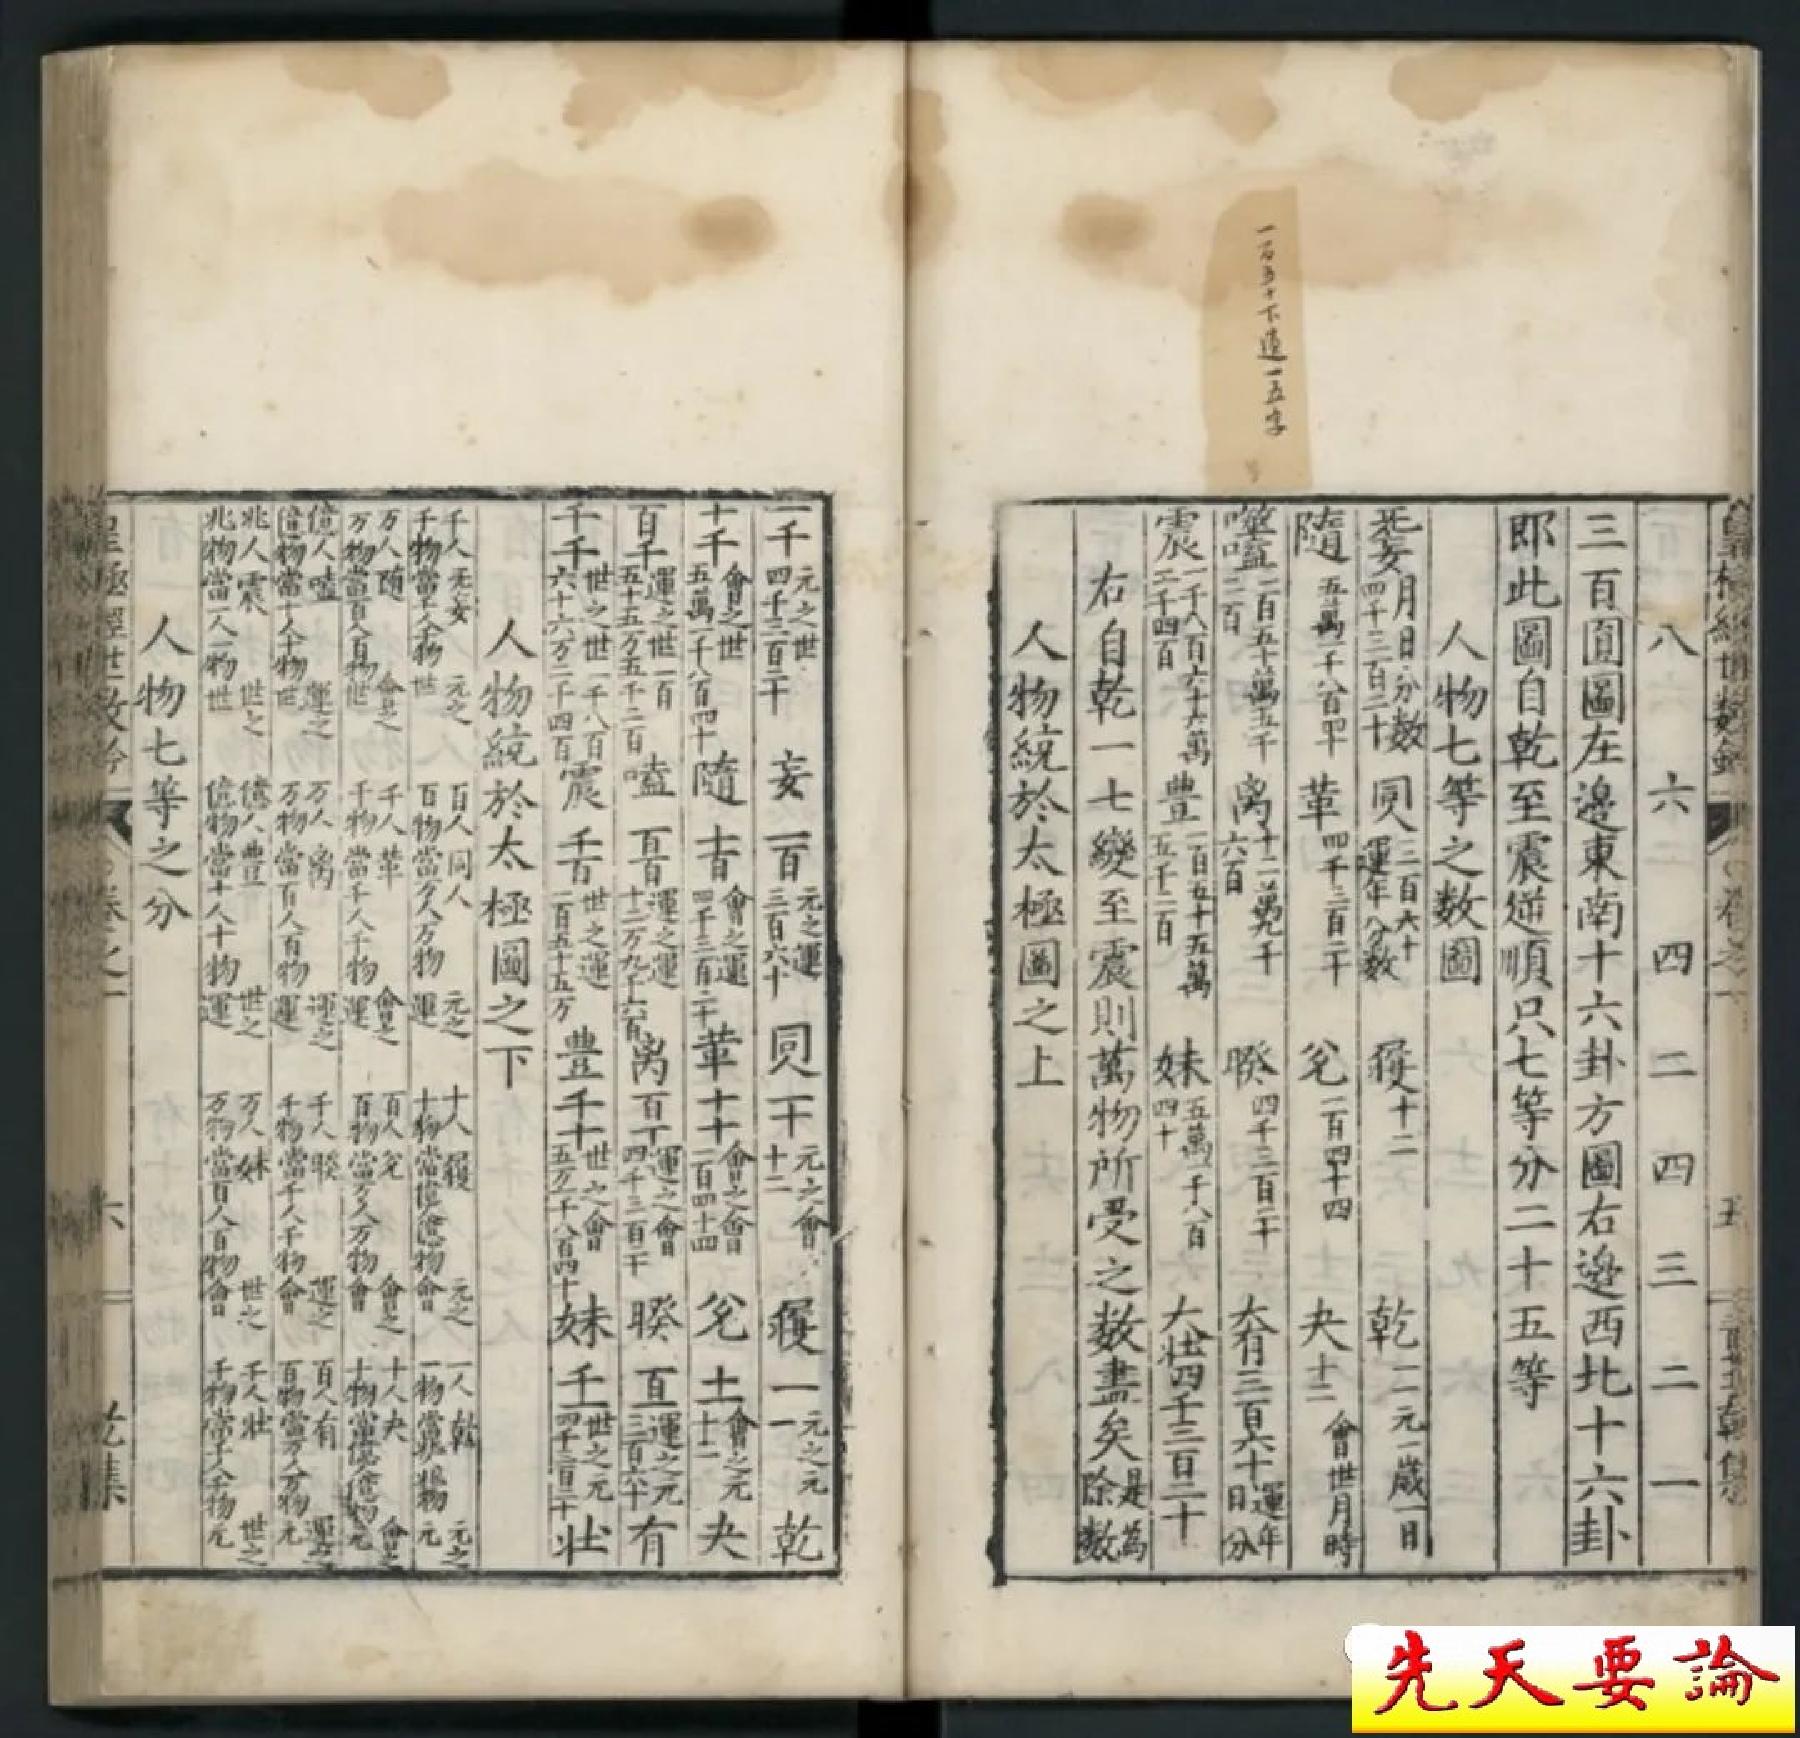 一百五十下遺一五字
八 六 四 二 四 三 二 一
三百圓圖左邊東南十六卦方圖右邊西北十六卦
即此圖自乾至震逆順只七等分二十五等
人物七等之數圖
月日分數四千三百二十 同人三百六十運年分數 履十二 乾一一元一歲一日
隨五萬一千八百四十 革四千三百二十 兊一百四十四 夬十二會世月時
噬嗑 離 睽四千三百二十 大有三百六十運年日分
震一千八百六十六萬二千四百 豊一百五十五萬五千二百 妹五萬一千八百四十 大壯四千三百二十
右自乾一七變至震則萬物所受之數盡矣是為除數
人物統於太極圖之上
一千元之世四千三百二十 妄 一百元之運三百六十 同 一十元之會十二 履 一一元之元 乾
十千會之世五萬一千八百四十 隨 十百會之運四千三百二十 革 十十會之會一百四十四 兊 十一會之元十二 夬
百千運之世一百五十五万五千二百 嗑 百百運之運十二万九千六百 离 百十運之會四千三百二十 睽 百一運之元三百六十 有
千千世之世一千八百六十六万二千四百 震 千百世之運一百五十五万 豊 千十世之會五万一千八百四十 妹 千一世之元四千三百二十 壯
人物統於太極圖之下
千人无妄 元之世 百人同人百物當万人万物 元之運 十人履十物當億人億物 元之會 一人乾一物當兆人兆物 元之元
万人随万物當百人百物 會之世 千人革千物當千人千物 會之運 百人兊百物當万人万物 會之會 十人夬十物當億人億物 會之元
億人嗑億物當十人十物 運之世 万人离万物當百人百物 運之運 千人睽千物當千人千物 運之會 百人有百物當万人万物 運之元
兆人震兆物當一人一物 世之世 億人豊億物當十人十物 世之運 万人妹万物當百人百物 世之會 千人壯千物當千人千物 世之元
人物七等之分
六
先天要論